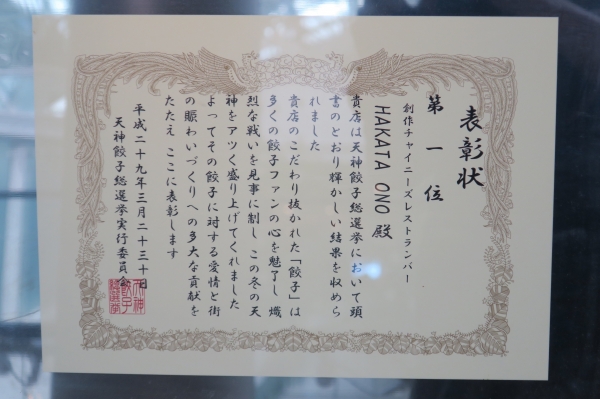 表彰状
第一位
創作チャイニーズレストランバー
HAKATA ONO 殿
貴店は天神餃子総選挙において頭
書のとおり輝かしい結果を収めら
れました
貴店のこだわり抜かれた「餃子」は
多くの餃子ファンの心を魅了し熾
烈な戦いを見事に制しこの冬の天
神をアツく盛り上げてくれました
よってその餃子に対する愛情と街
の賑わいづくりへの多大な貢献を
たたえここに表彰します
平成二十九年三月二十三日
天神餃子総選挙実行委員会